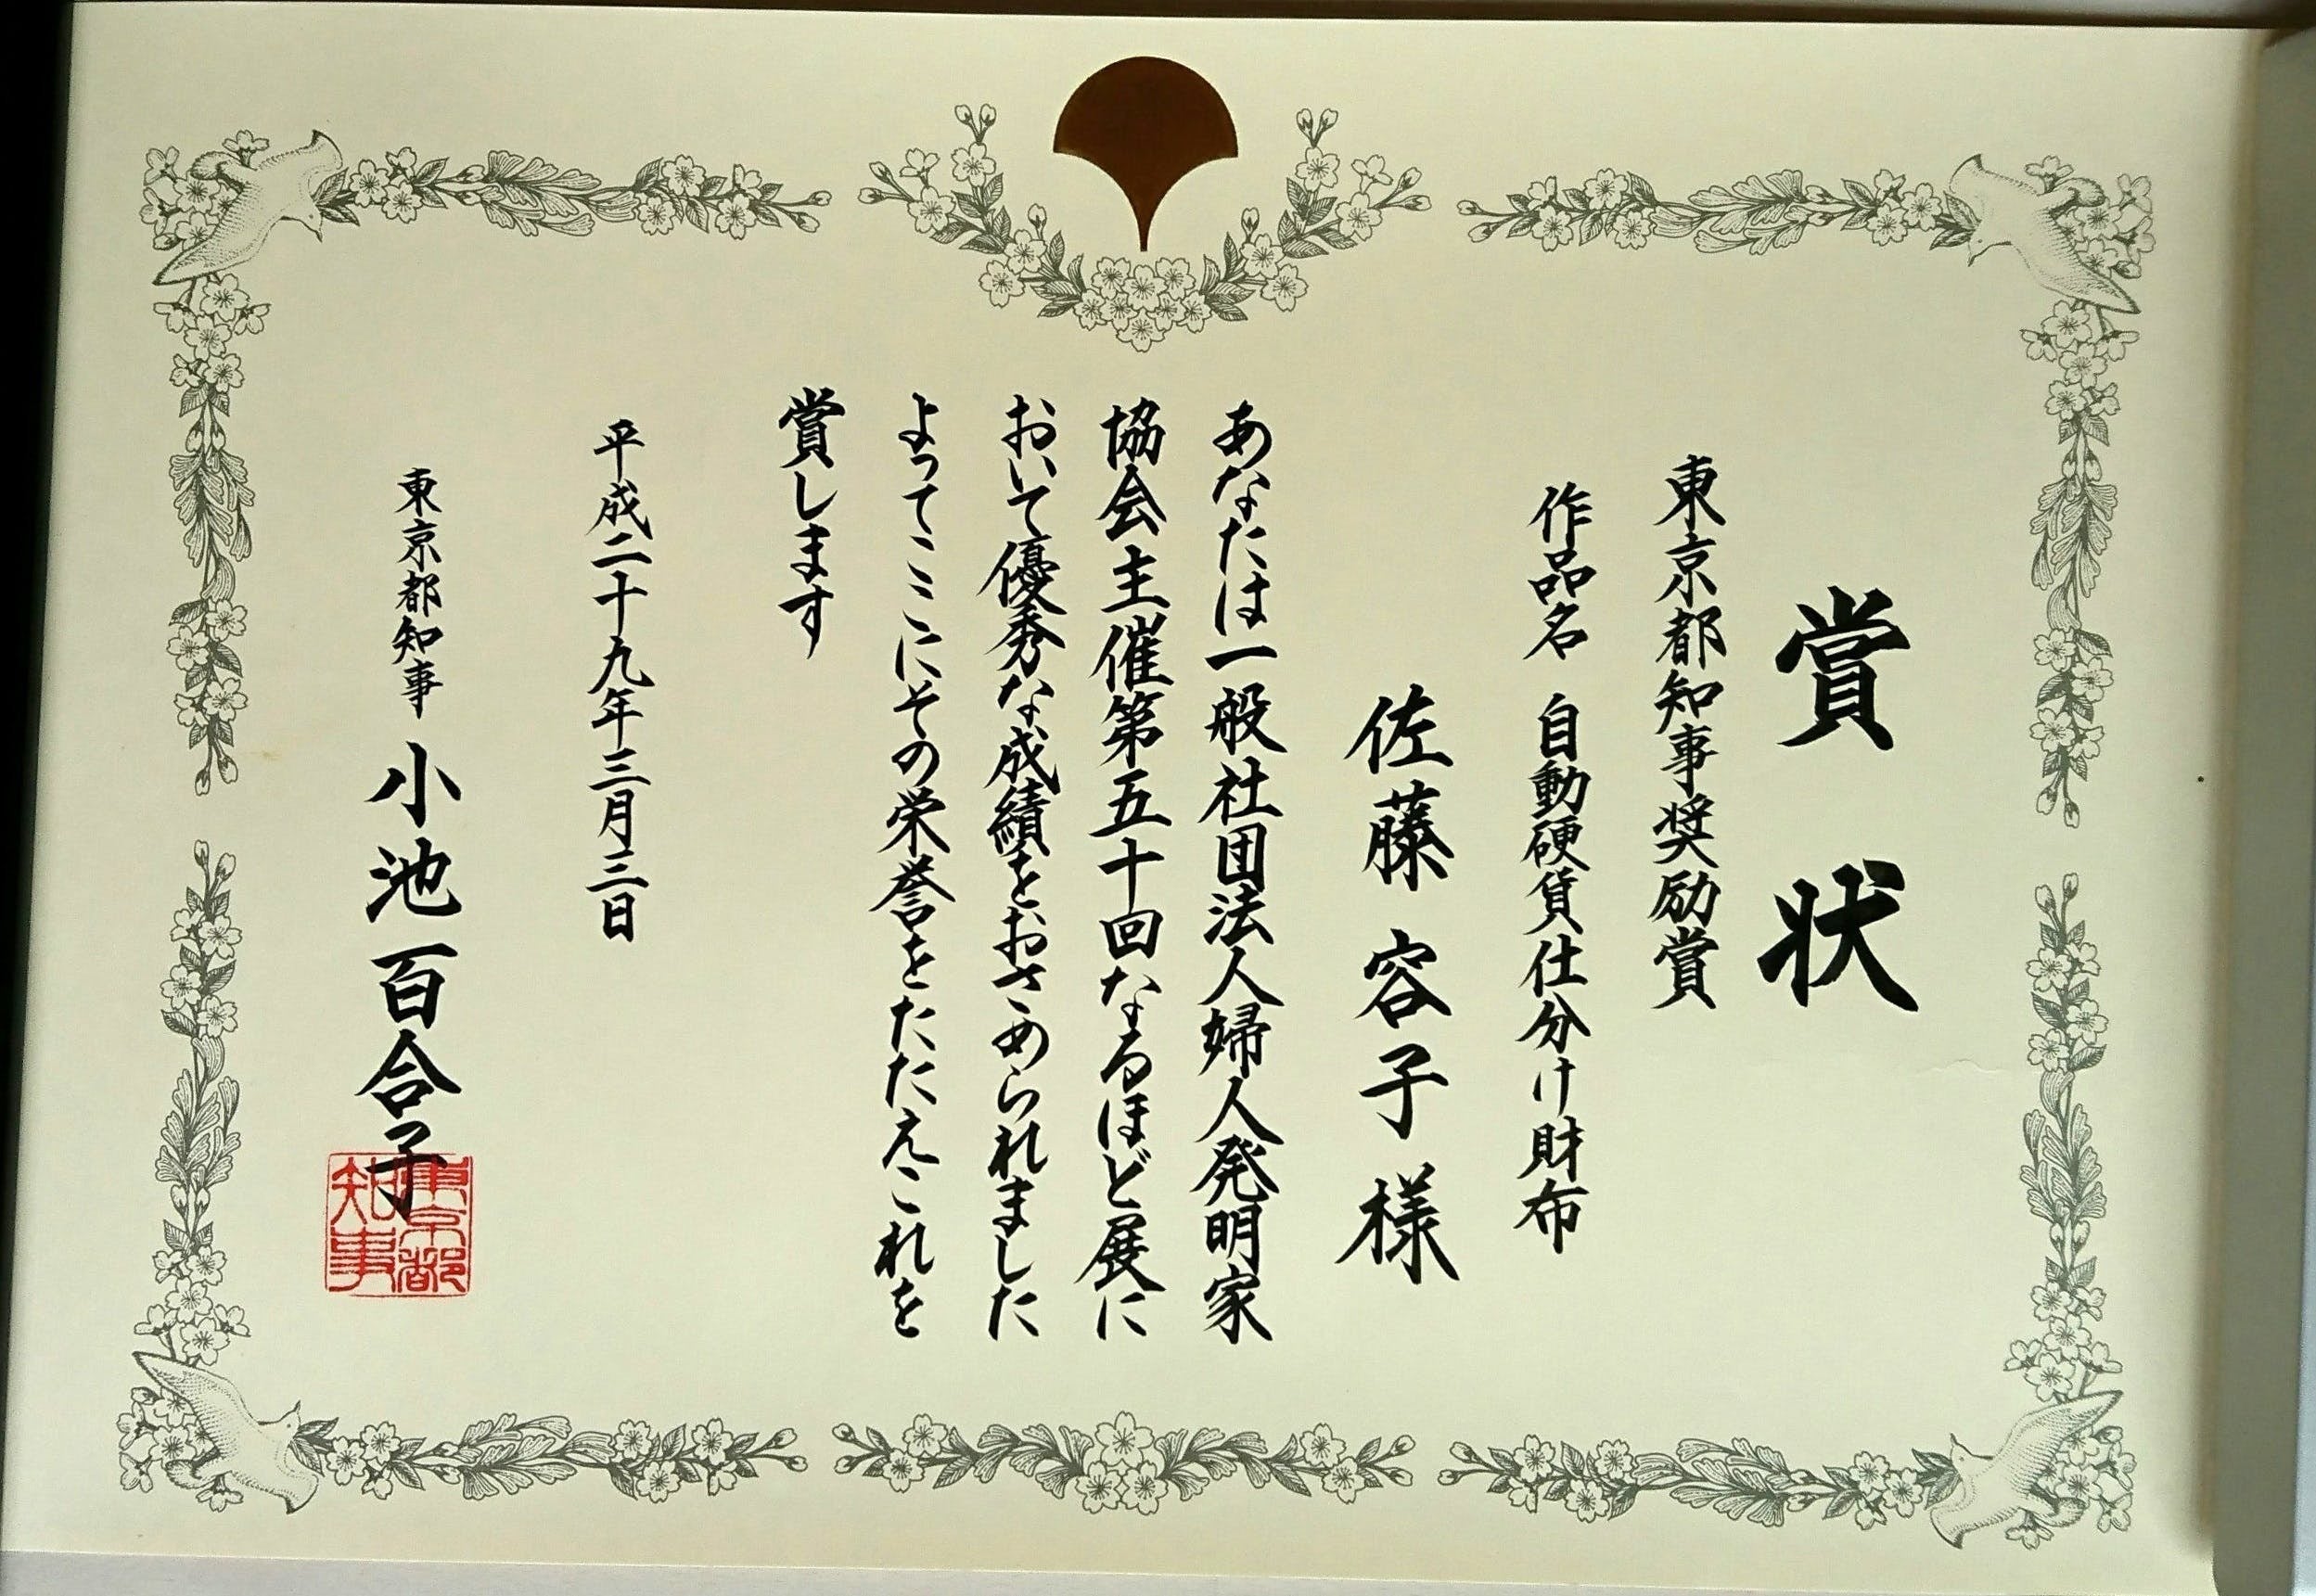 賞状
東京都知事奨励賞
作品名 自動硬貨仕分け財布
佐藤容子様
あなたは一般社団法人婦人発明家
協会主催第五十回なるほど展に
おいて優秀な成績をおさめられました
よってここにその栄誉をたたえこれを
賞します
平成二十九年三月三日
東京都知事 小池百合子
東京都
知事